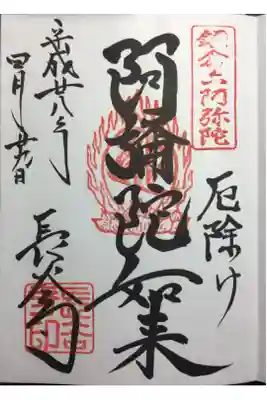 鎌倉六阿弥陀
厄除け
阿彌陀如来
平成廿八年
四月廿九日
長谷寺